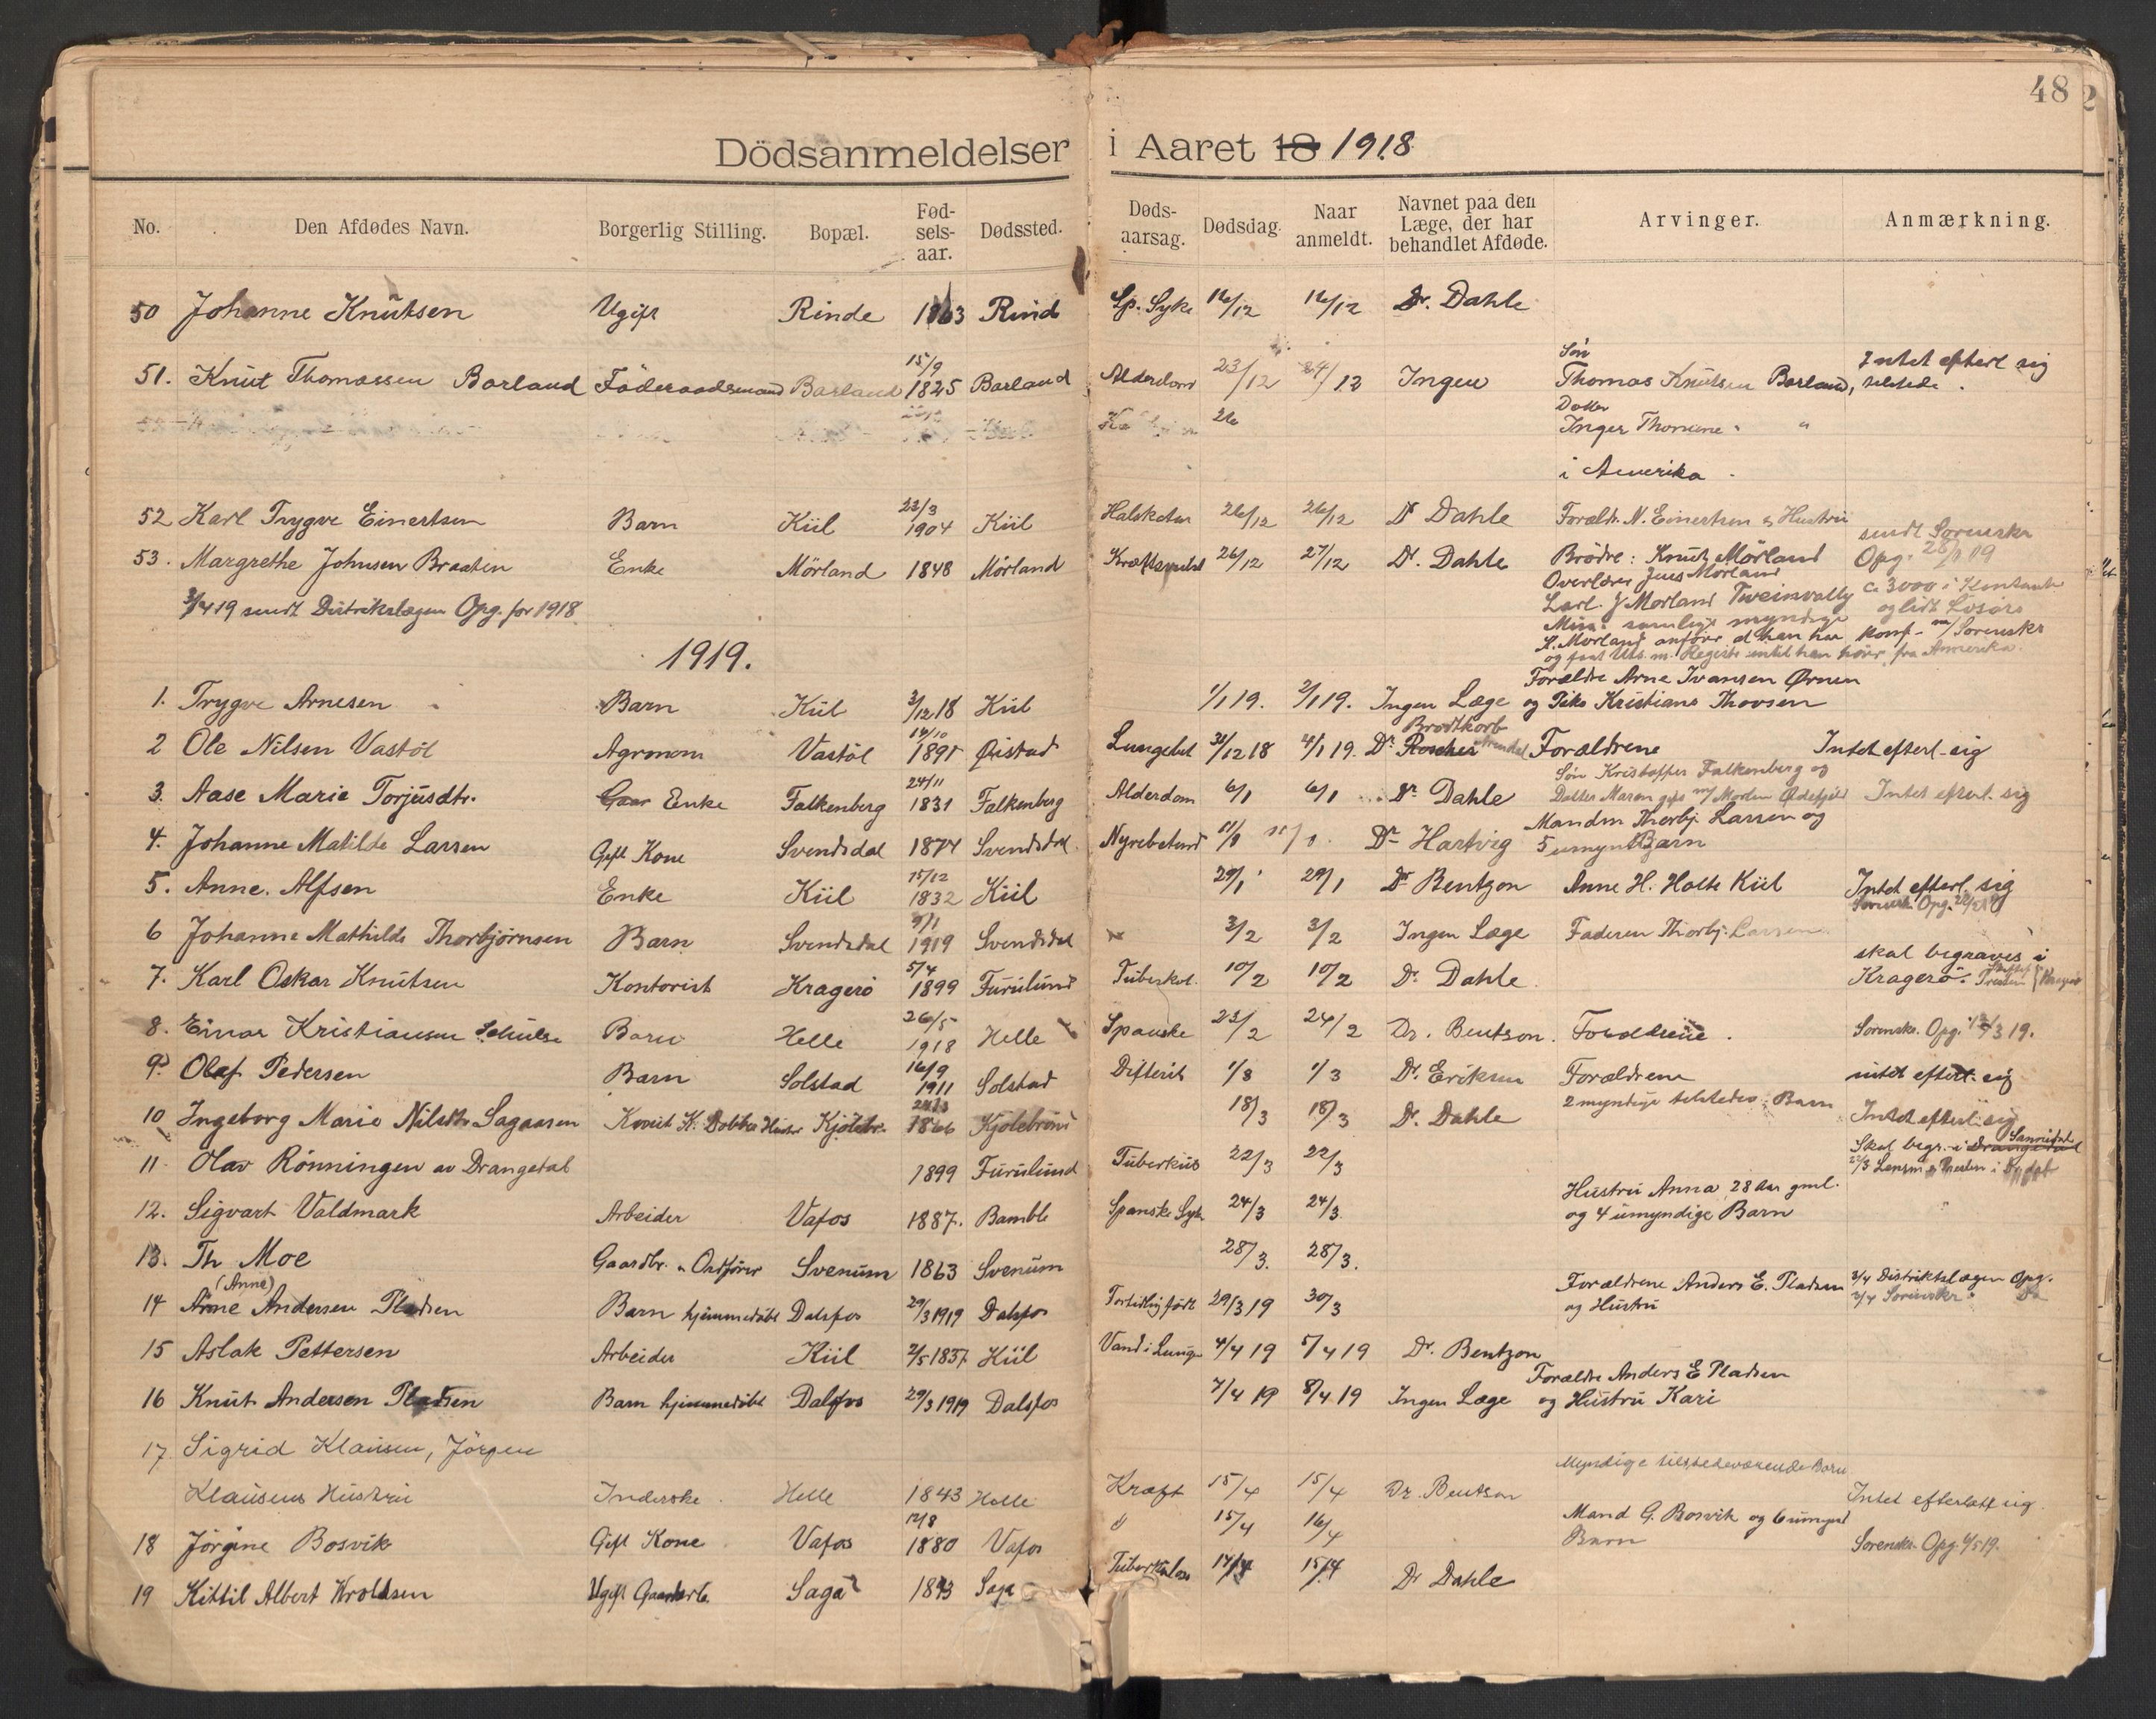 48
Dödsanmeldelser i Aaret 18 1918
No. Den Afdødes Navn. Borgerlig Stilling. Bopæl. Fødselsaar. Dødssted. Dødsaarsag. Dødsdag. Naar anmeldt. Navnet paa den Læge, der har behandlet Afdøde. Arvinger. Anmærkning.
50 Johanne Knutsen Ugift Rinde 1863 Rind Sp. Syke 16/12 16/12 Dr. Dahle
51. Knut Thomassen Barland Föderaadsmand Barland 15/9 1825 Barland Alderdom 23/12 24/12 Ingen Søn Thomas Knutsen Barland, Intet efterl sig
Datter Inger Thomine " "
i Amerika
52 Karl Trygve Einertsen Barn Kiil 23/3 1904 Kiil 26/12 26/12 Dr Dahle Foræld. N. Einertsen & Hustru
53. Margrethe Johnsen Braaten Enke Mörland 1848 Mörland 26/12 27/12 Dr. Dahle Brödre: Knut Mörland sendt Sorenskr Opg.
Overlærer Jens Mörland
3/4 19 sendt Distriktslægen Opg. for 1918
1919.
1. Trygve Arnesen Barn Kiil 3/12 18 Kiil 1/1 19. 2/1 19. Ingen Læge Forældre Arne Ivarsen Ørnen og Kristiane Thovsen
2 Ole Nilsen Vastöl Agronom Vastöl 1891 Øistad 31/12 18 4/1 19. Dr Brodtkorb Forældrene Intet efterl. sig
3. Aase Marie Torjusdtr. Gaar Enke Falkenberg 24/11 1831 Falkenberg Alderdom 6/1 6/1 Dr Dahle Søn Kristoffer Falkenberg og Datter Maren gift m/ Morten Intet efterl. sig
4. Johanne Matilde Larsen Gift Kone Svendsdal 1874 Svendsdal Dr Hartvig Manden Thorbj. Larsen og 5 umynd Barn
5. Anne. Alfsen Enke Kiil 15/12 1832 Kiil 29/1 29/1 Dr Bentzon Anne H. Holte Kiil Intet efterl. sig
6 Johanne Mathilde Thorbjørnsen Barn Svendsdal 1919 Svendsdal 3/2 3/2 Ingen Læge Faderen Thorbj. Larsen
7. Karl Oskar Knutsen Kontorist Kragerö 5/4 1899 Furulund Tuberkul. 10/2 10/2 Dr. Dahle skal begraves i Kragerö.
8. Einar Kristiansen Schulse Barn Helle 26/5 1918 Helle Spanske 23/2 24/2 Dr. Bentson. Forældrene. Sorenskr. Opg. 12/3 19.
9. Olaf Pedersen Barn Solstad 16/9 1911 Solstad Difterit 1/3 1/3 Dr. Eriksen Forældrene intet efterl. sig
10 Ingeborg Marie Nilsdtr Sagaasen Knut K. Dobbe Hustr Kjölebr. 1866 Kjölebrönd 18/3 18/3 Dr. Dahle 2 myndige tilstedev. Barn Intet efterl. sig
11. Olav Rönningen av Drangedal 1899 Furulund 22/3 22/3 Skal begr. i Drangedal Sannidal
12. Sigvart Valdmark Arbeider Vafos 1887. Bamble Spanske Syk 24/3 24/3 Hustru Anna 28 Aar gml. og 4 umyndige Barn
13. Th Moe Gaardbr. & Ordförer Svenum 1863 Svenum 28/3. 28/3.
14 (Anne) Arne Andersen Pladsen Barn hjemmedöbt Dalsfos 29/3 1919 Dalsfos Fortidlig födt 29/3 19 30/3 Forældrene Anders E. Pladsen og Hustru 3/4 Distriktslægen Opg. 3/4 Sorenskr.
15 Aslak Pettersen Arbeider Kiil 2/5 1837 Kiil Vand i Lunge 4/4 19 5/4 19 Dr. Bentzon
16 Knut Andersen Pladsen Barn hjemmedöbt Dalsfos 29/3 1919 Dalsfos 7/4 19 8/4 19 Ingen Læge Forældre Anders E Pladsen og Hustru Kari
17. Sigrid Klausen, Jörgen
Klausens Hustru Inderske. Helle 1843 Helle Kræft 15/4 15/4 Dr. Bentson Myndige tilstedeværende Barn Intet efterlatt sig.
18 Jörgine Bosvik Gift Kone Vafos 12/8 1880 Vafos " 15/4 16/4 Mand G. Bosvik og 6 umynd Barn Sorenskr. Opg. 4/5 19.
19 Kittil Albert Kroldsen Ugift Gaardbr. Saga 1893 Saga Tuberkulose 14/4 15/4 Dr Dahle